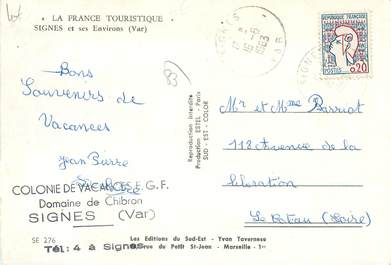 " LA FRANCE TOURISTIQUE "
SIGNES et ses Environs (Var)
Bons
Souvenirs de
Vacances
Jean Pierre
COLONIE DE VACANCES E.G.F.
Domaine de Chibron
SIGNES (Var)
SE 276
Tél: 4 à Signes
83
Reproduction interdite
Production ESTEL - Paris
SUD - EST - COLOR
Les Editions du Sud-Est - Yvon Tavernese
rue du Petit St-Jean - Marseille - 1er
SIGNES
16-8
1963
VAR
REPUBLIQUE FRANÇAISE
POSTES 0,20
Mr et Mme Barriot
112 Avenue de la
libération
(Loire)